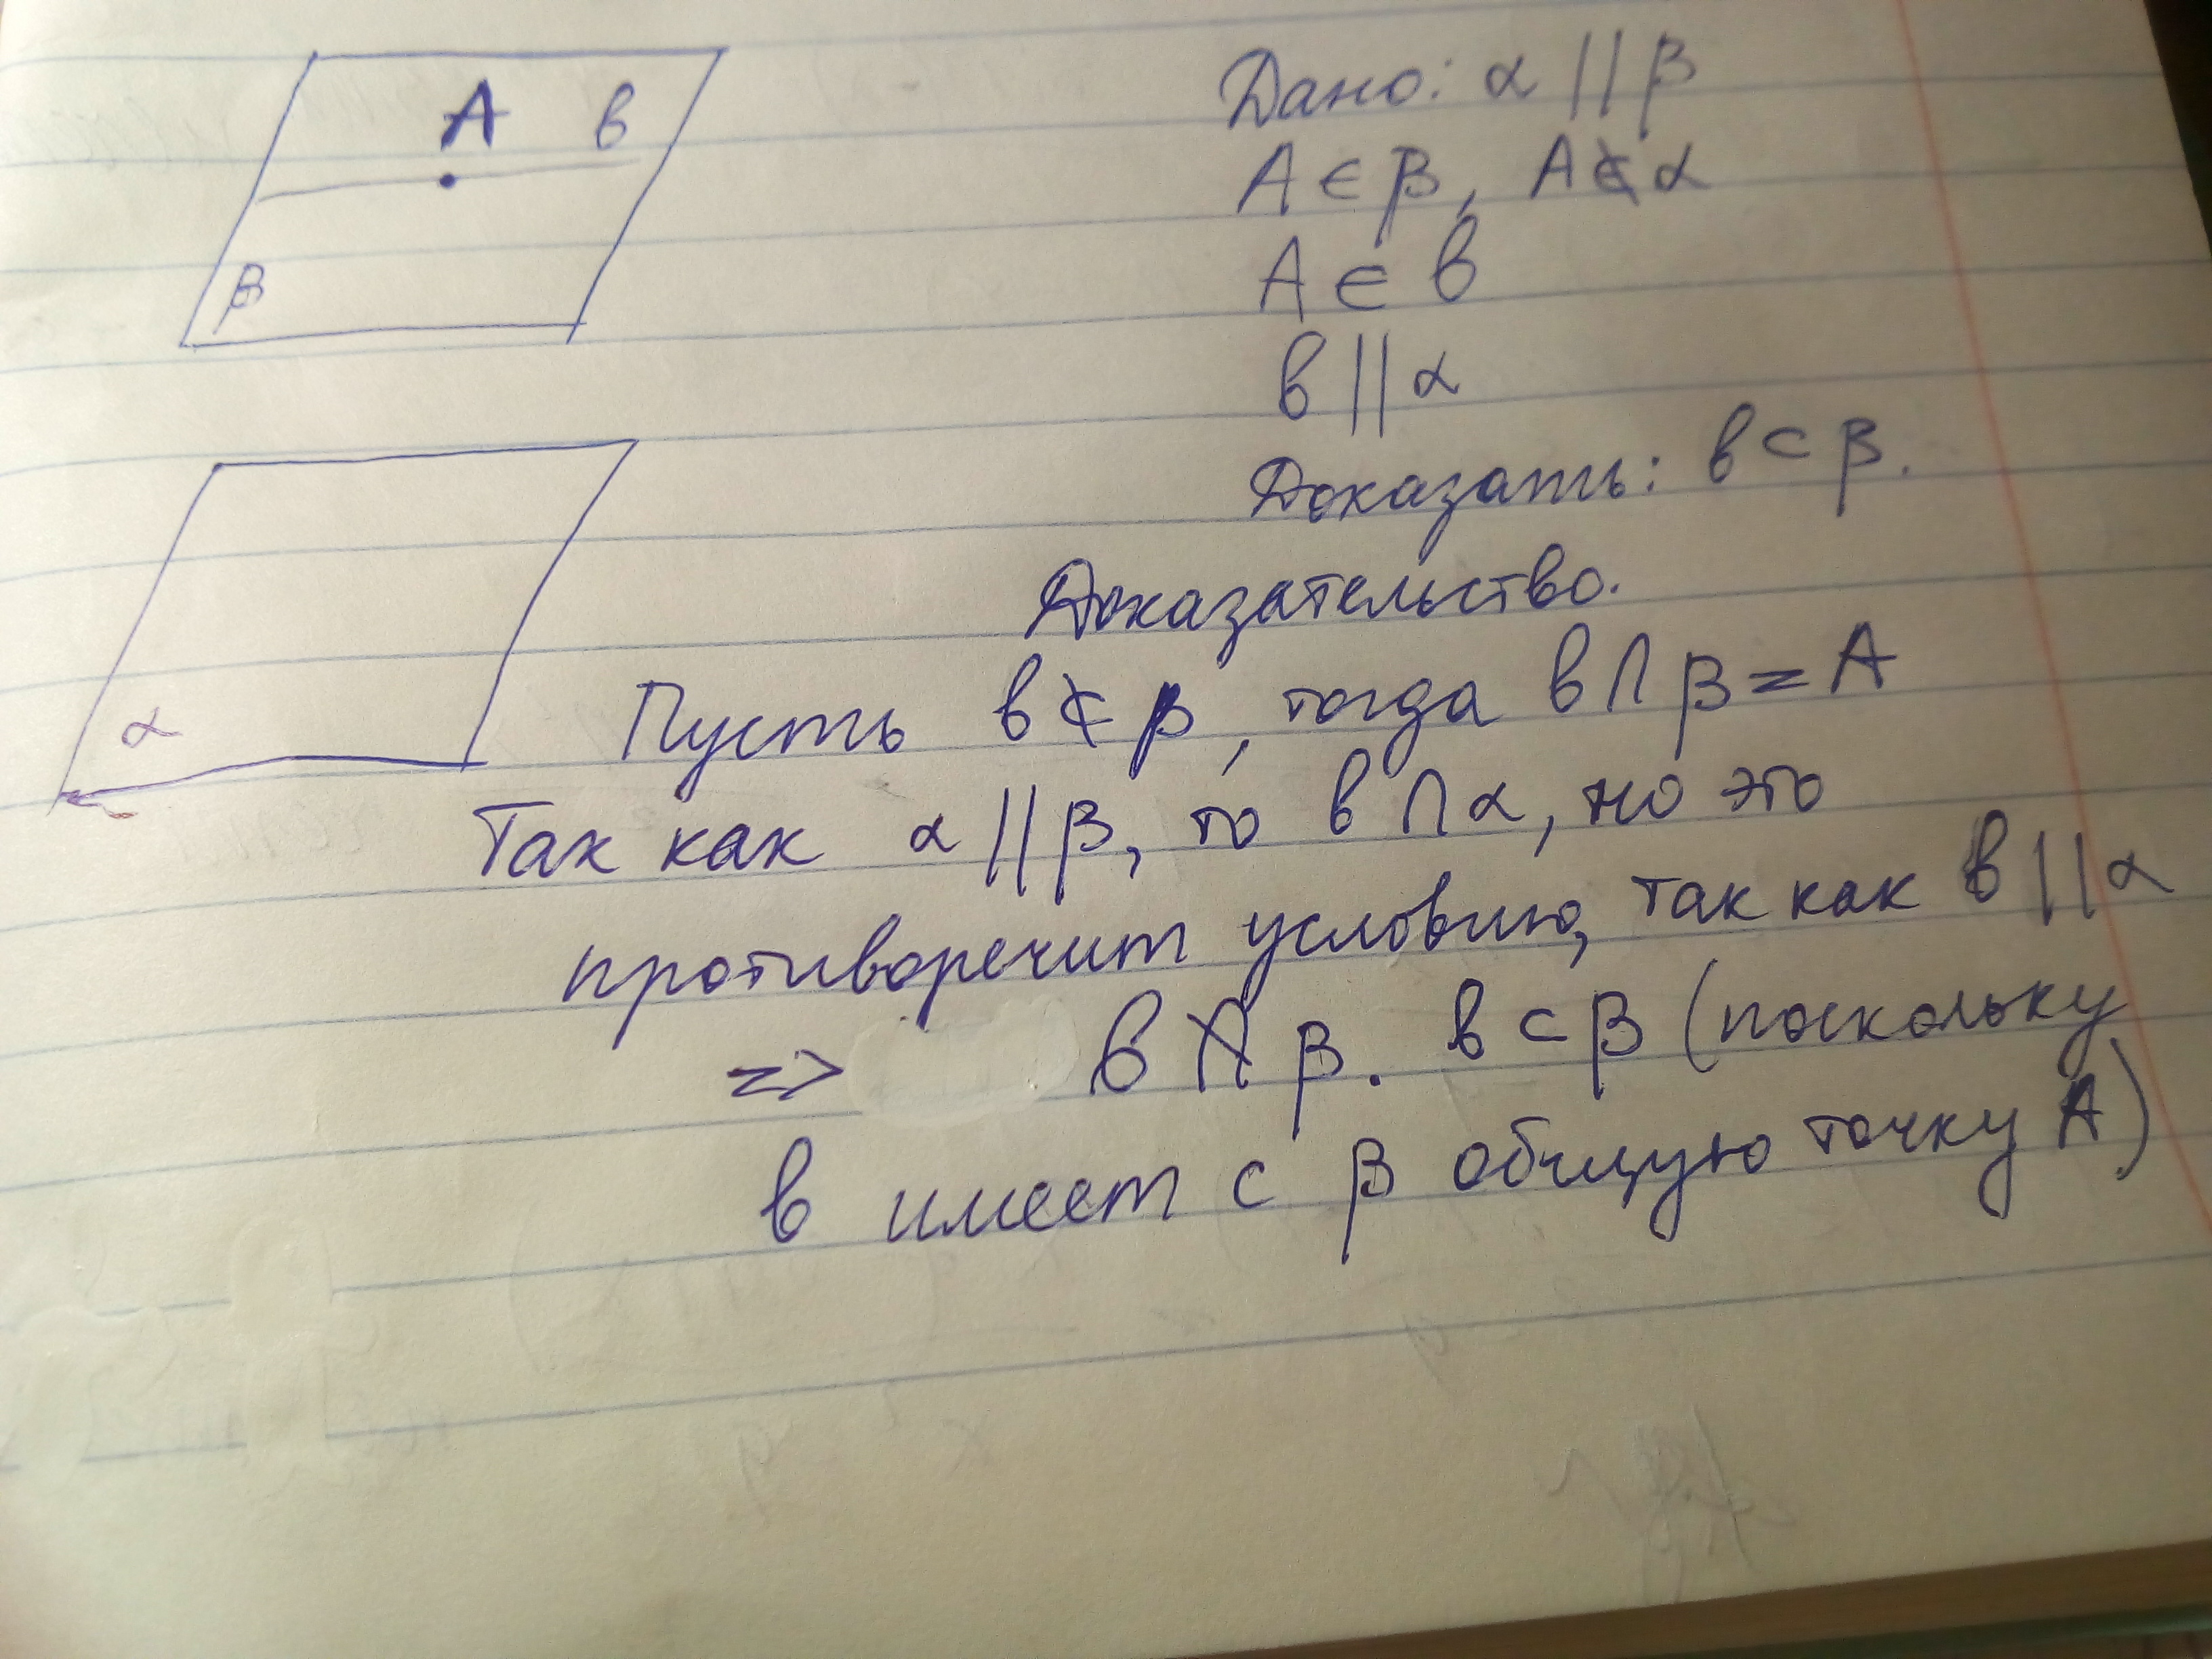 A в
β
α
Дано: α || β
A ∈ β, A ∉ α
A ∈ в
в || α
Доказать: в ⊂ β.
Доказательство.
Пусть в ⊄ β, тогда в ∩ β = A
Так как α || β, то в ∩ α, но это
противоречит условию, так как в || α
=> в ∩̸ β. в ⊂ β (поскольку
в имеет с β общую точку A)